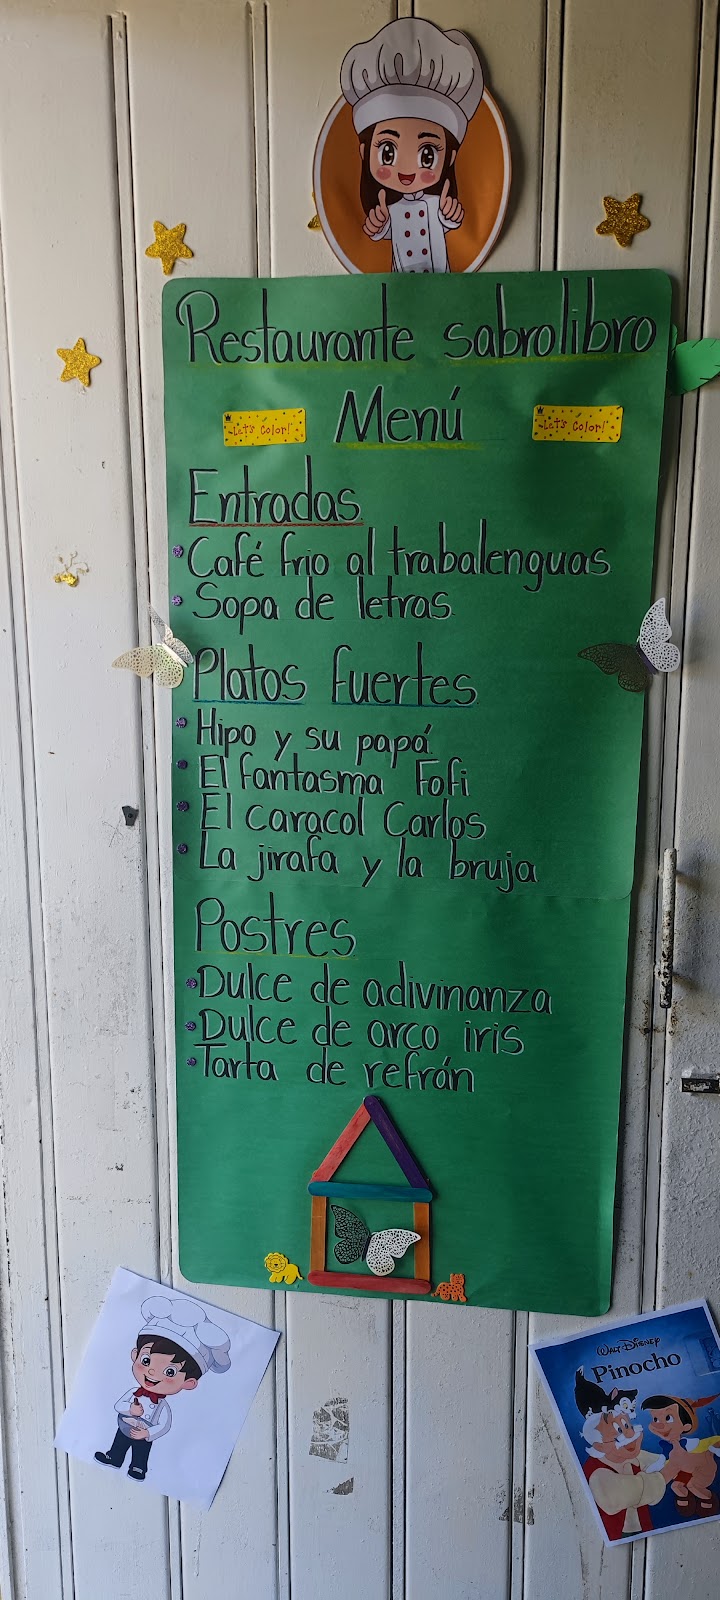 Restaurante sabrolibro
Menú
Let's Color!
Let's Color!
Entradas
Café frio al trabalenguas
Sopa de letras
Platos fuertes
Hipo y su papá
El fantasma Fofi
El caracol Carlos
La jirafa y la bruja
Postres
Dulce de adivinanza
Dulce de arco iris
Tarta de refrán
WALT DISNEY
Pinocho